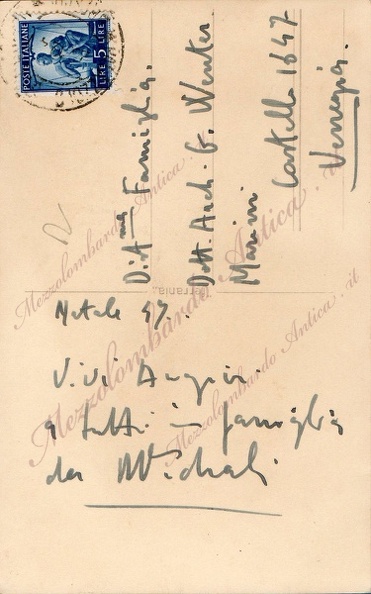 POSTE ITALIANE
LIRE 5 LIRE
Dist.ma Famiglia
Dott. Arch. G. Wenter
Marini
Castello 1647
Venezia
ferrania
Natale 47.
Vivi Auguri
a tutti in famiglia
da
Mezzolombardo Antica.it
Mezzolombardo Antica.it
Mezzolombardo Antica.it